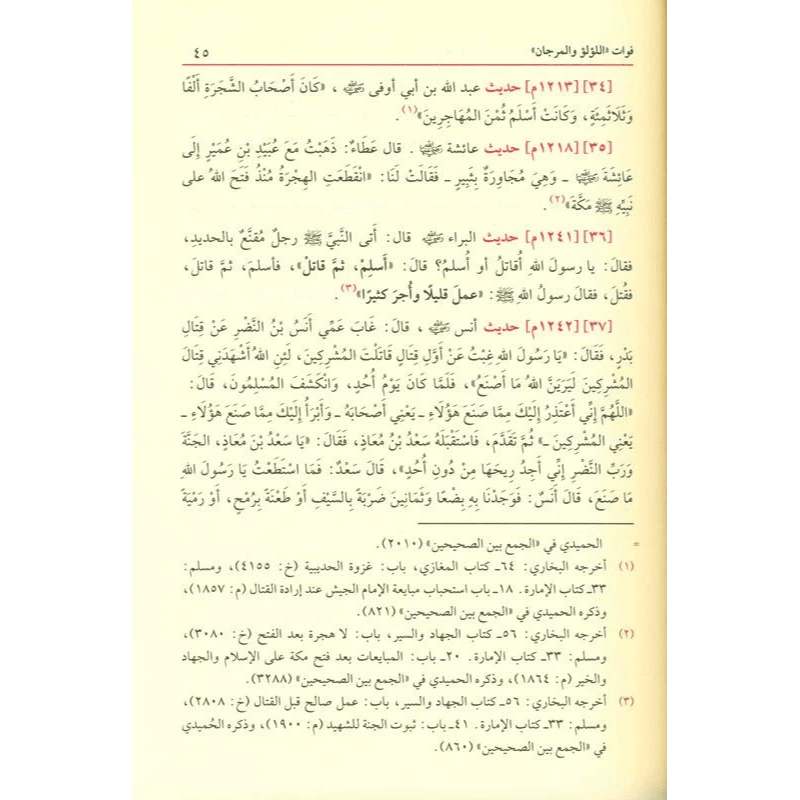 فوات «اللؤلؤ والمرجان» ٤٥
[٣٤] [١٢١٣م] حديث عبد الله بن أبي أوفى ﵁ ، «كَانَ أَصْحَابُ الشَّجَرَةِ أَلْفًا
وَثَلَاثَمِئَةٍ، وَكَانَتْ أَسْلَمُ ثُمْنَ المُهَاجِرِينَ»(١).
[٣٥] [١٢١٨م] حديث عائشة ﵂ . قال عَطَاءٌ: ذَهَبْتُ مَعَ عُبَيْدِ بْنِ عُمَيْرٍ إِلَى
عَائِشَةَ ﵂ ـ وَهِيَ مُجَاوِرَةٌ بِثَبِيرٍ ـ فَقَالَتْ لَنَا: «انْقَطَعَتِ الهِجْرَةُ مُنْذُ فَتَحَ اللهُ على
نَبِيِّهِ ﷺ مَكَّةَ»(٢).
[٣٦] [١٢٤١م] حديث البراء ﵁ قال: أَتى النَّبيَّ ﷺ رجلٌ مُقنَّعٌ بالحديدِ،
فقالَ: يا رسولَ اللهِ أُقاتلُ أو أُسلمُ؟ قالَ: «أَسلِمْ، ثمَّ قاتلْ»، فأسلمَ، ثمَّ قاتلَ،
فقُتلَ، فقالَ رسولُ اللهِ ﷺ: «عملَ قليلًا وأُجرَ كثيرًا»(٣).
[٣٧] [١٢٤٢م] حديث أنس ﵁ ، قالَ: غَابَ عَمِّي أَنَسُ بْنُ النَّضْرِ عَنْ قِتَالِ
بَدْرٍ، فَقَالَ: «يَا رَسُولَ اللهِ غِبْتُ عَنْ أَوَّلِ قِتَالٍ قَاتَلْتَ المُشْرِكِينَ، لَئِنِ اللهُ أَشْهَدَنِي قِتَالَ
المُشْرِكِينَ لَيَرَيَنَّ اللهُ مَا أَصْنَعُ»، فَلَمَّا كَانَ يَوْمُ أُحُدٍ، وَانْكَشَفَ المُسْلِمُونَ، قَالَ:
«اللَّهُمَّ إِنِّي أَعْتَذِرُ إِلَيْكَ مِمَّا صَنَعَ هَؤُلَاءِ ـ يَعْنِي أَصْحَابَهُ ـ وَأَبْرَأُ إِلَيْكَ مِمَّا صَنَعَ هَؤُلَاءِ ـ
يَعْنِي المُشْرِكِينَ ـ» ثُمَّ تَقَدَّمَ، فَاسْتَقْبَلَهُ سَعْدُ بْنُ مُعَاذٍ، فَقَالَ: «يَا سَعْدُ بْنَ مُعَاذٍ، الجَنَّةَ
وَرَبِّ النَّضْرِ إِنِّي أَجِدُ رِيحَهَا مِنْ دُونِ أُحُدٍ»، قَالَ سَعْدٌ: فَمَا اسْتَطَعْتُ يَا رَسُولَ اللهِ
مَا صَنَعَ، قَالَ أَنَسٌ: فَوَجَدْنَا بِهِ بِضْعًا وَثَمَانِينَ ضَرْبَةً بِالسَّيْفِ أَوْ طَعْنَةً بِرُمْحٍ، أَوْ رَمْيَةً
= الحميدي في «الجمع بين الصحيحين» (٢٠١٠).
(١) أخرجه البخاري: ٦٤ـ كتاب المغازي، باب: غزوة الحديبية (خ: ٤١٥٥)، ومسلم:
٣٣ـ كتاب الإمارة. ١٨ـ باب استحباب مبايعة الإمام الجيش عند إرادة القتال (م: ١٨٥٧)،
وذكره الحميدي في «الجمع بين الصحيحين» (٨٢١).
(٢) أخرجه البخاري: ٥٦ـ كتاب الجهاد والسير، باب: لا هجرة بعد الفتح (خ: ٣٠٨٠)،
ومسلم: ٣٣ـ كتاب الإمارة. ٢٠ـ باب: المبايعات بعد فتح مكة على الإسلام والجهاد
والخير (م: ١٨٦٤)، وذكره الحميدي في «الجمع بين الصحيحين» (٣٢٨٨).
(٣) أخرجه البخاري: ٥٦ـ كتاب الجهاد والسير، باب: عمل صالح قبل القتال (خ: ٢٨٠٨)،
ومسلم: ٣٣ـ كتاب الإمارة. ٤١ـ باب: ثبوت الجنة للشهيد (م: ١٩٠٠)، وذكره الحُميدي
في «الجمع بين الصحيحين» (٨٦٠).